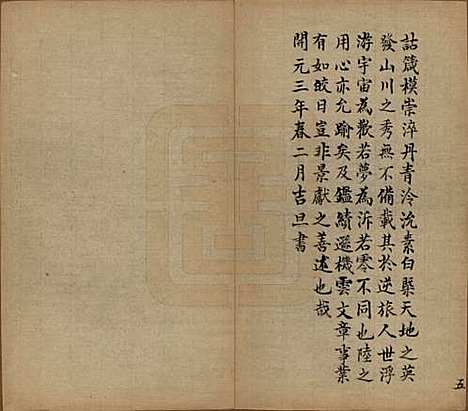 詁箴模崇淬丹青泠沇素白槩天地之英
發山川之秀無不備載其於逆旅人世浮
游宇宙為歡若夢為泝若零不同也陸之
用心亦允踰矣及鑑綺遜機雲文章事業
有如皎日豈非景獻之善述也哉
開元三年春二月吉旦書
五